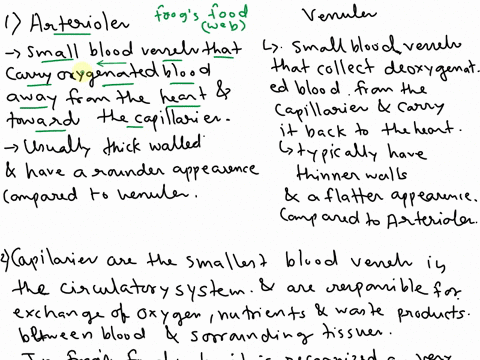 1) Arterioler
frog's food
(web)
Venuler
→ Small blood venels that
carry oxygenated blood
away from the heart &
toward the capillarier.
→ Usually thick walled
& have a rounder appearence
compared to venuler.
↳ Small blood venels
that collect deoxygenat
ed blood from the
capillarier & carry
it back to the heart.
↳ typically have
thinner walls
& a flatter appearence.
Compared to Arterioler
2) Capilarier are the smallest blood venels in
the circulatory system. & are responsible for
exchange of oxygen, nutrients & waste products.
between blood & sorrounding tissues.
it is recognized a very